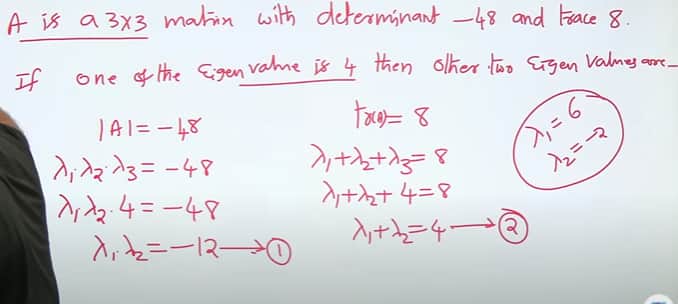 A is a 3x3 matrix with determinant -48 and trace 8.
If one of the Eigen value is 4 then other two Eigen Values are_
|A|= -48
λ₁.λ₂.λ₃= -48
λ₁λ₂.4= -48
λ₁.λ₂=-12→①
tr(A)= 8
λ₁+λ₂+λ₃=8
λ₁+λ₂+4=8
λ₁+λ₂=4→②
λ₁=6
λ₂=-2